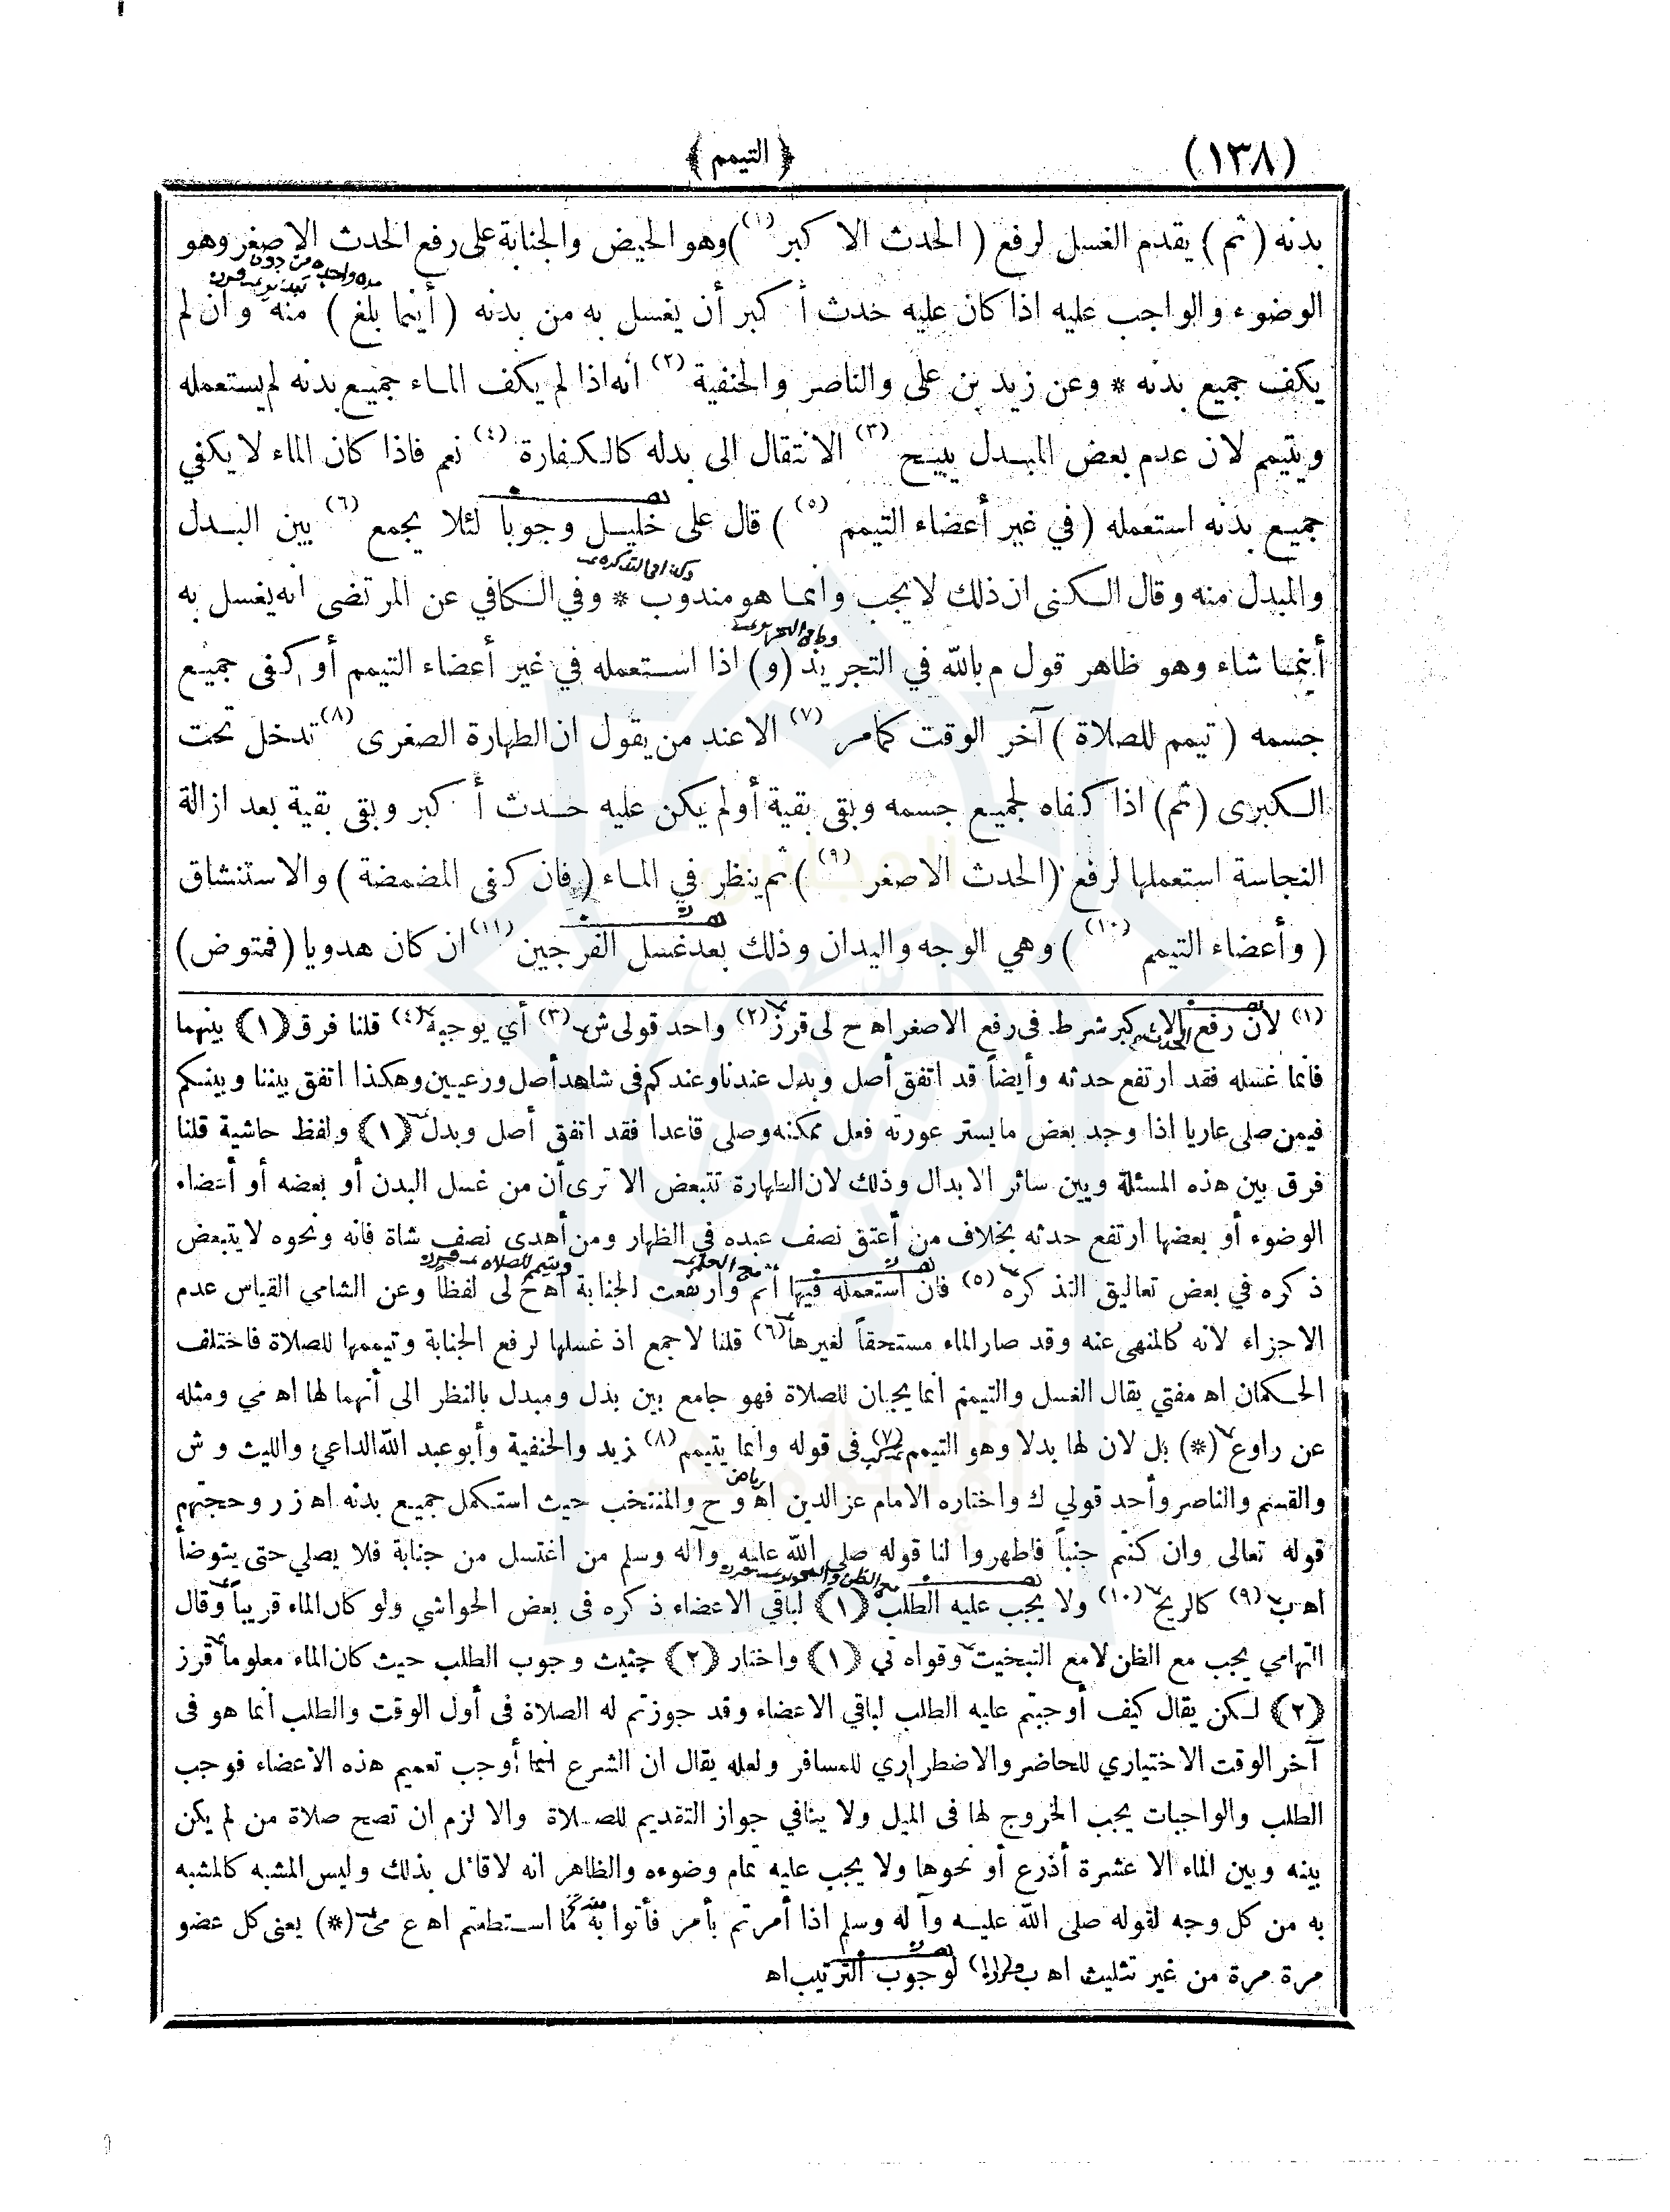 (١٣٨)
﴿ التيمم ﴾
بدنه ( ثم ) يقدم الغسل لرفع ( الحدث الاكبر (١) ) وهو الحيض والجنابة على رفع الحدث الاصغر وهو
الوضوء والواجب عليه اذا كان عليه حدث أكبر أن يغسل به من بدنه ( أينما بلغ ) منه وان لم
يكف جميع بدنه * وعن زيد بن على والناصر والحنفية (٢) انه اذا لم يكف الماء جميع بدنه لم يستعمله
ويتيمم لان عدم بعض المبدل يبيح (٣) الانتقال الى بدله كالكفارة (٤) نعم فاذا كان الماء لا يكفي
جميع بدنه استعمله ( في غير أعضاء التيمم (٥) ) قال على خليل وجوبا لئلا يجمع (٦) بين البدل
وكذا في التذكره
والمبدل منه وقال الكنى ان ذلك لا يجب وانما هو مندوب * وفي الكافي عن المرتضى انه يغسل به
أينما شاء وهو ظاهر قول م بالله في التجريد ( و ) اذا استعمله في غير أعضاء التيمم أو كفى جميع
جسمه ( تيمم للصلاة ) آخر الوقت كما مر (٧) الا عند من يقول ان الطهارة الصغرى (٨) تدخل تحت
الكبرى ( ثم ) اذا كفاه لجميع جسمه وبقى بقية أو لم يكن عليه حدث أكبر وبقى بقية بعد ازالة
النجاسة استعملها لرفع ( الحدث الاصغر (٩) ) ثم ينظر في الماء ( فان كفى المضمضة ) والاستنشاق
( وأعضاء التيمم (١٠) ) وهي الوجه واليدان وذلك بعد غسل الفرجين (١١) ان كان هدويا ( فمتوض )
(١) لان رفع الاكبر شرط فى رفع الاصغر اه ح لى قرز (٢) واحد قولى ش (٣) أي يوجبه (٤) قلنا فرق ﴿١﴾ بينهما
فانما غسله فقد ارتفع حدثه وأيضاً قد اتفق أصل وبدل عندنا وعندكم فى شاهد أصل ورعيين وهكذا اتفق بيننا وبينكم
فيمن صلى عاريا اذا وجد بعض ما يستر عورته فعل ممكنه وصلى قاعدا فقد اتفق أصل وبدل ﴿١﴾ ولفظ حاشية قلنا
فرق بين هذه المسئلة وبين سائر الابدال وذلك لان الطهارة تتبعض الا ترى أن من غسل البدن أو بعضه أو أعضاء
الوضوء أو بعضها ارتفع حدثه بخلاف من أعتق نصف عبده في الظهار ومن أهدى نصف شاة فانه ونحوه لا يتبعض
ويتيمم للصلاه قرز
ذكره في بعض تعاليق التذكرة (٥) فان استعمله فيها أثم وارتفعت الجنابة اه ح لى لفظاً وعن الشامي القياس عدم
الاجزاء لانه كالمنهى عنه وقد صار الماء مستحقاً لغيرها (٦) قلنا لا جمع اذ غسلها لرفع الجنابة وتيممها للصلاة فاختلف
الحكمان اه مفتي يقال الغسل والتيمم انما يجبان للصلاة فهو جامع بين بدل ومبدل بالنظر الى أنهما لها اه مي ومثله
عن راوع (*) بل لان لها بدلا وهو التيمم (٧) فى قوله وانما يتيمم (٨) زيد والحنفية وأبو عبد الله الداعي والليث و ش
والقسم والناصر وأحد قولي ك واختاره الامام عز الدين اه و ح والمنتخب حيث استكمل جميع بدنه اه ز ر وحجتهم
قوله تعالى وان كنتم جنباً فاطهروا لنا قوله صلى الله عليه وآله وسلم من اغتسل من جنابة فلا يصلي حتى يتوضأ
اه ب (٩) كالريح (١٠) ولا يجب عليه الطلب ﴿١﴾ لباقي الاعضاء ذكره فى بعض الحواشي ولو كان الماء قريباً وقال
التهامي يجب مع الظن لا مع التبخيت وقواه تي ﴿١﴾ واختار ﴿٢﴾ حثيث وجوب الطلب حيث كان الماء معلوماً قرز
﴿٢﴾ لكن يقال كيف أوجبتم عليه الطلب لباقي الاعضاء وقد جوزتم له الصلاة فى أول الوقت والطلب انما هو فى
آخر الوقت الاختياري للحاضر والاضطراري للمسافر ولعله يقال ان الشرع انما أوجب تعميم هذه الاعضاء فوجب
الطلب والواجبات يجب الخروج لها فى الميل ولا ينافي جواز التقديم للصلاة والا لزم ان تصح صلاة من لم يكن
بينه وبين الماء الا عشرة أذرع أو نحوها ولا يجب عليه تمام وضوءه والظاهر انه لا قائل بذلك وليس المشبه كالمشبه
به من كل وجه لقوله صلى الله عليه وآله وسلم اذا أمرتم بأمر فأتوا به ما استطعتم اه ع مى (*) يعنى كل عضو
مرة مرة من غير تثليث اه ب قرز (١١) لوجوب الترتيب اه